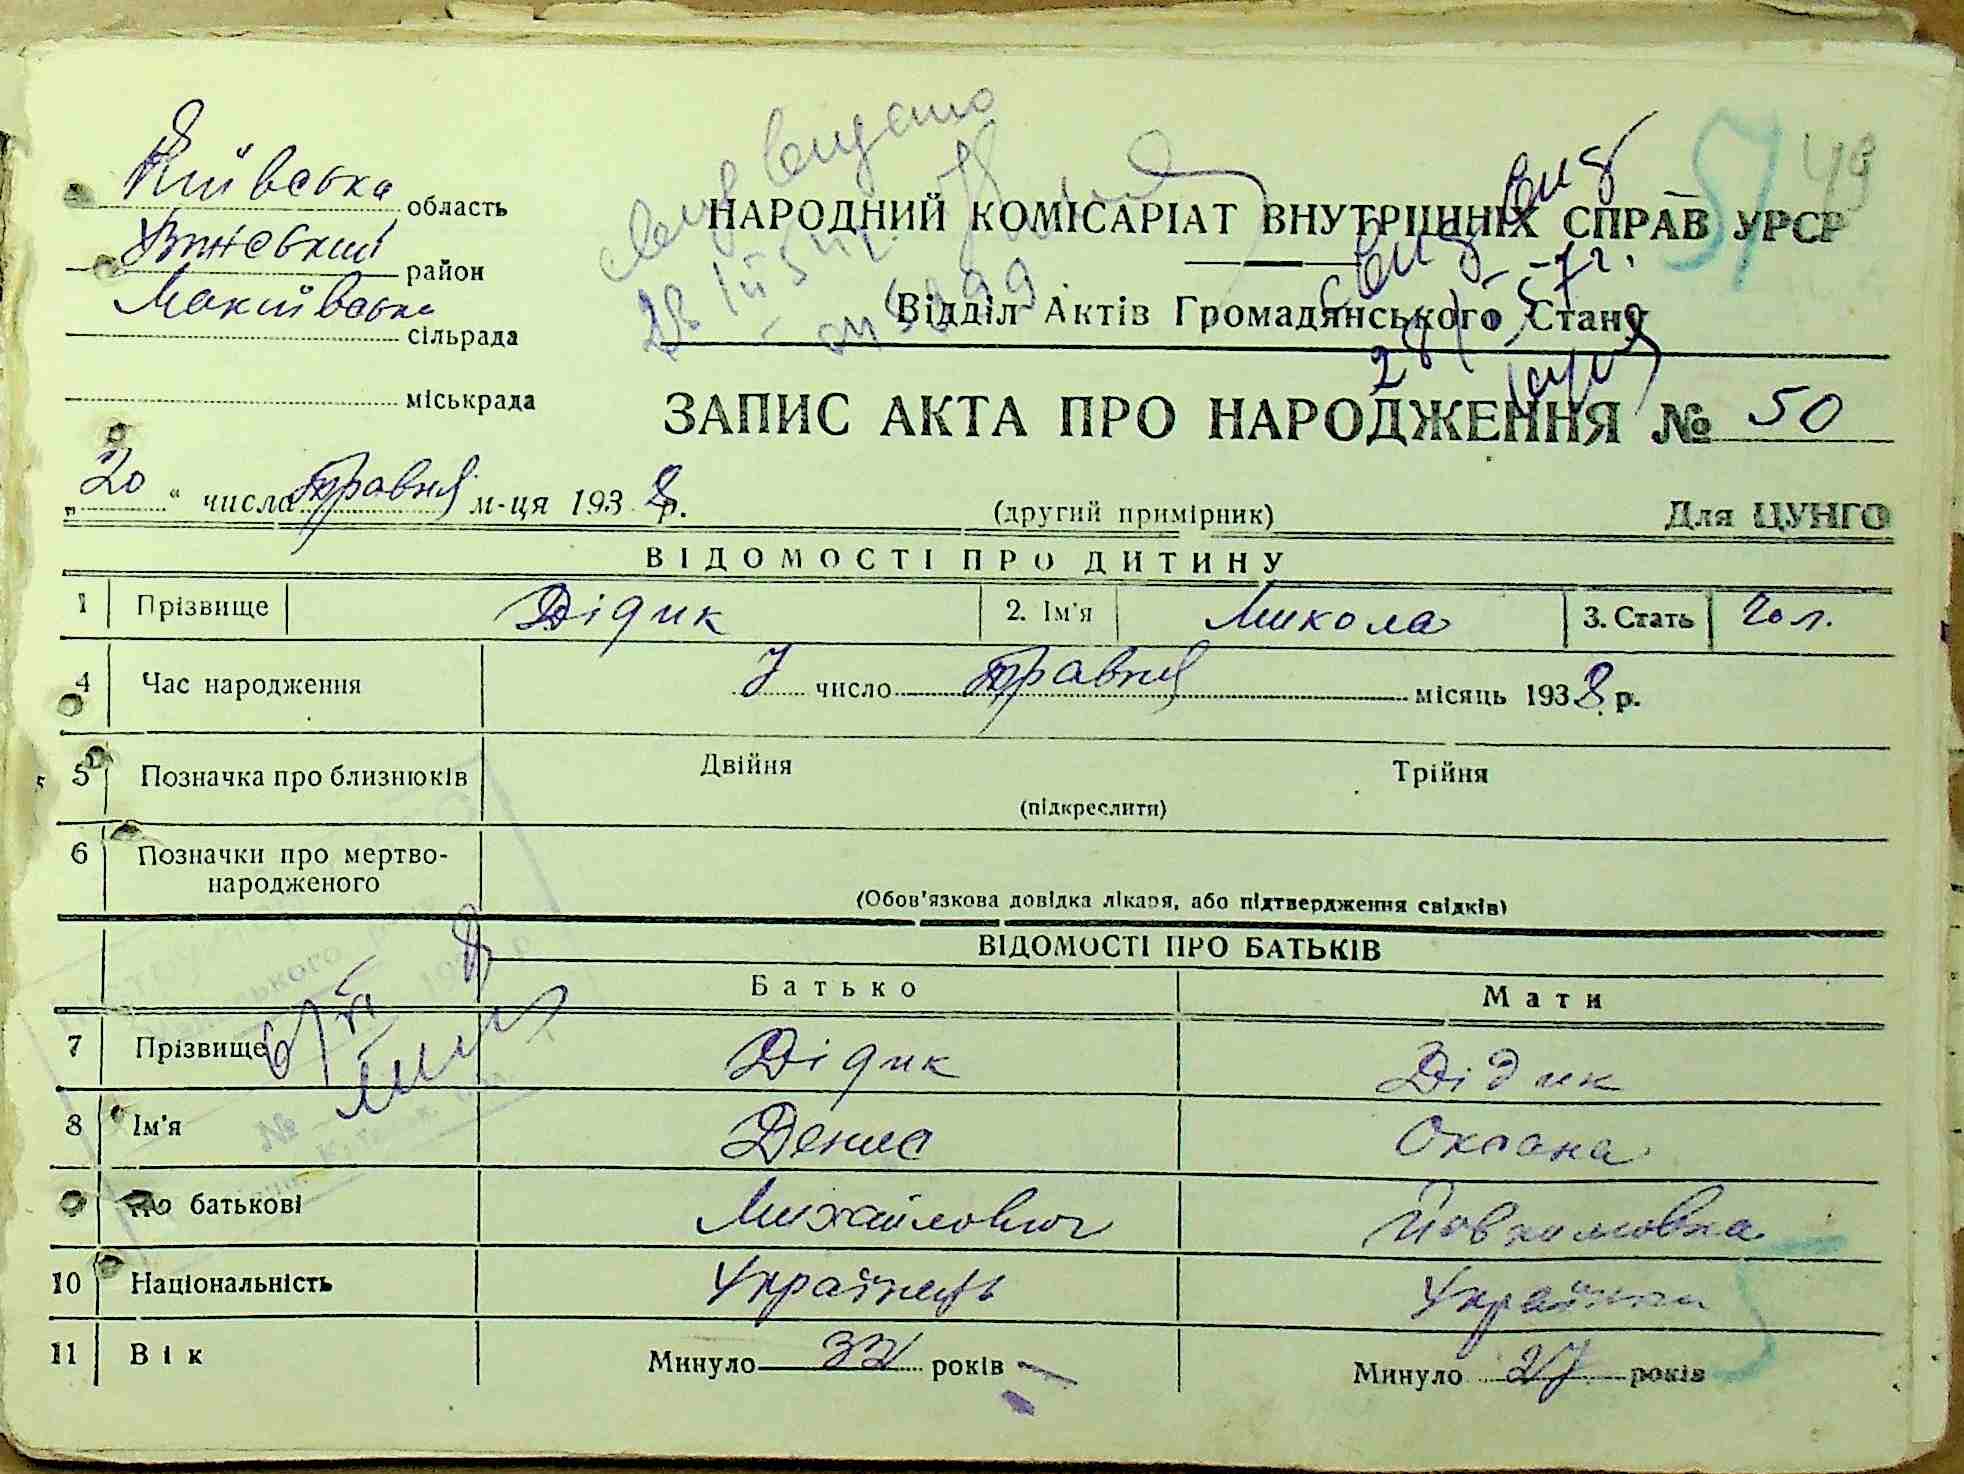 Київська область
район
Макіївська сільрада
міськрада
свид видано
49
НАРОДНИЙ КОМІСАРІАТ ВНУТРІШНІХ СПРАВ УРСР
Відділ Актів Громадянського Стану
ЗАПИС АКТА ПРО НАРОДЖЕННЯ № 50
„20“ числа травня м-ця 1938 р.
(другий примірник)
Для ЦУНГО
ВІДОМОСТІ ПРО ДИТИНУ
1 Прізвище Дідик 2. Ім'я Микола 3. Стать чол.
4 Час народження 7 число травня місяць 1938 р.
5 Позначка про близнюків Двійня Трійня
(підкреслити)
6 Позначки про мертво-
народженого
(Обов'язкова довідка лікаря, або підтвердження свідків)
ВІДОМОСТІ ПРО БАТЬКІВ
Батько Мати
7 Прізвище Дідик Дідик
8 Ім'я Денис Оксана
По батькові Михайлович Йовхимовна
10 Національність Українець Українка
11 Вік Минуло 32 років Минуло 27 років